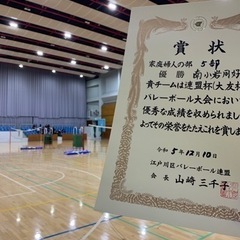 賞状
家庭婦人の部 5部
優勝 南小岩同好
貴チームは連盟杯(大友杯
バレーボール大会におい
優秀な成績を収められまし
よってその栄誉をたたえこれを賞しま
令和5年12月10日
江戸川区バレーボール連盟
会長 山﨑三千子